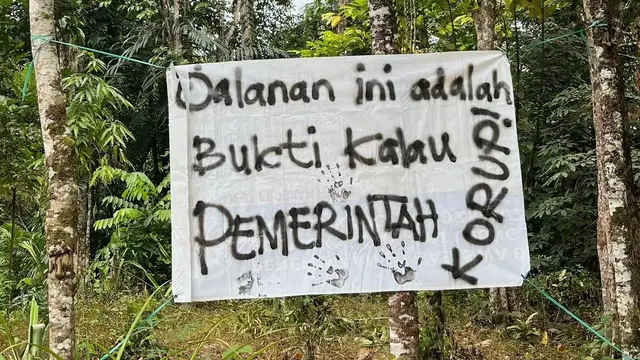 Jalanan ini adalah
Bukti Kalau
PEMERINTAH
KORUP!